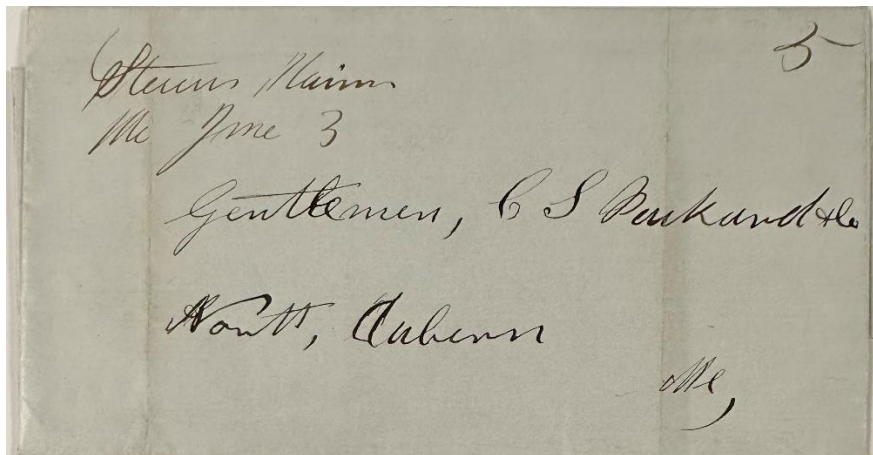 5
Stevens Plains
Me June 3
Gentlemen, C S Packard & Co
North, Auburn
Me,